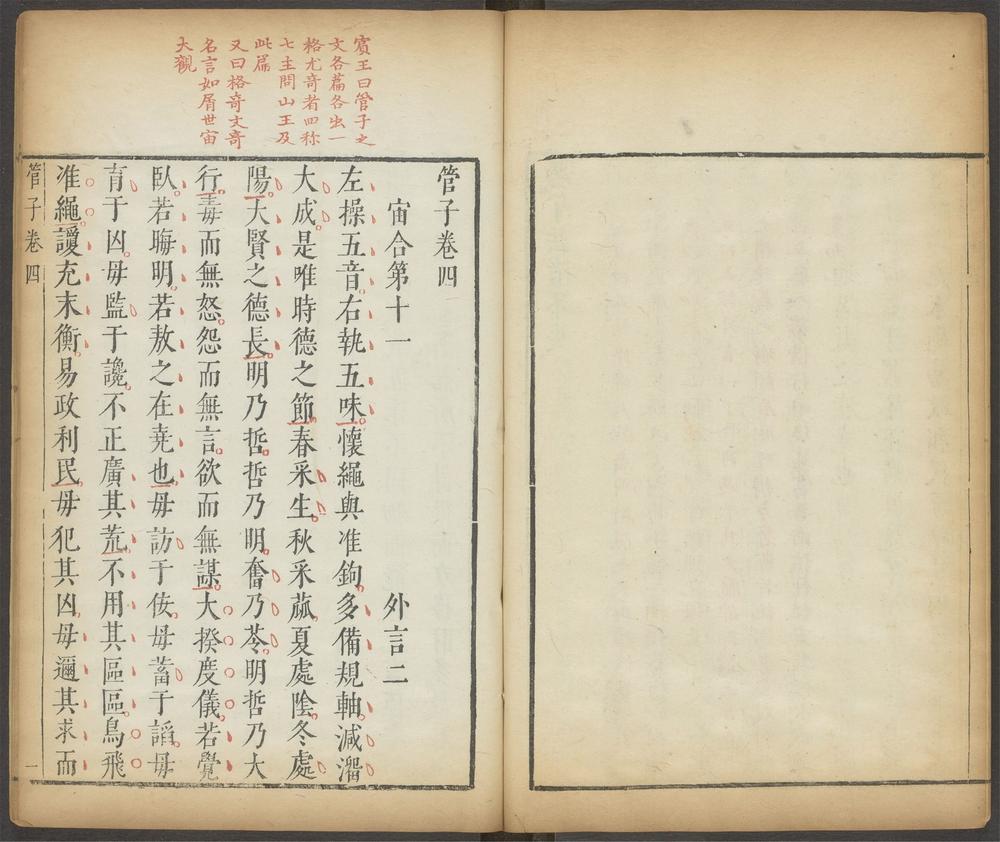 賓王曰管子之
文各篇各出一
格尤奇者四称
七主問山王及
此篇
又曰格奇文奇
名言如屑世宙
大觀
管子卷四
宙合第十一 外言二
左操五音右執五味懷繩與准鉤多備規軸減溜
大成是唯時德之節春采生秋采蓏夏處陰冬處
陽大賢之德長明乃哲哲乃明奮乃苓明哲乃大
行毒而無怒怨而無言欲而無謀大揆度儀若覺
臥若晦明若敖之在堯也毋訪于佞毋蓄于謟毋
育于凶毋監于讒不正廣其荒不用其區區鳥飛
准繩讂充末衡易政利民毋犯其凶毋邇其求而
管子卷四 一